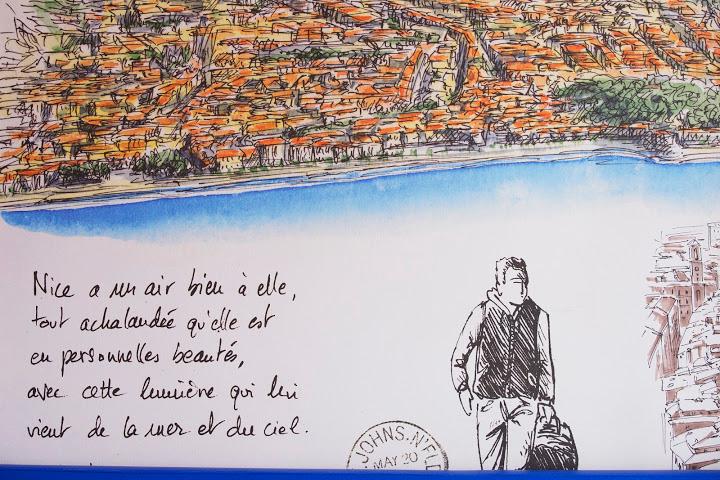 Nice a un air bien à elle,
tout achalandée qu'elle est
en personnelles beautés,
avec cette lumière qui lui
vient de la mer et du ciel.
JOHNS. N'FL
MAY 20